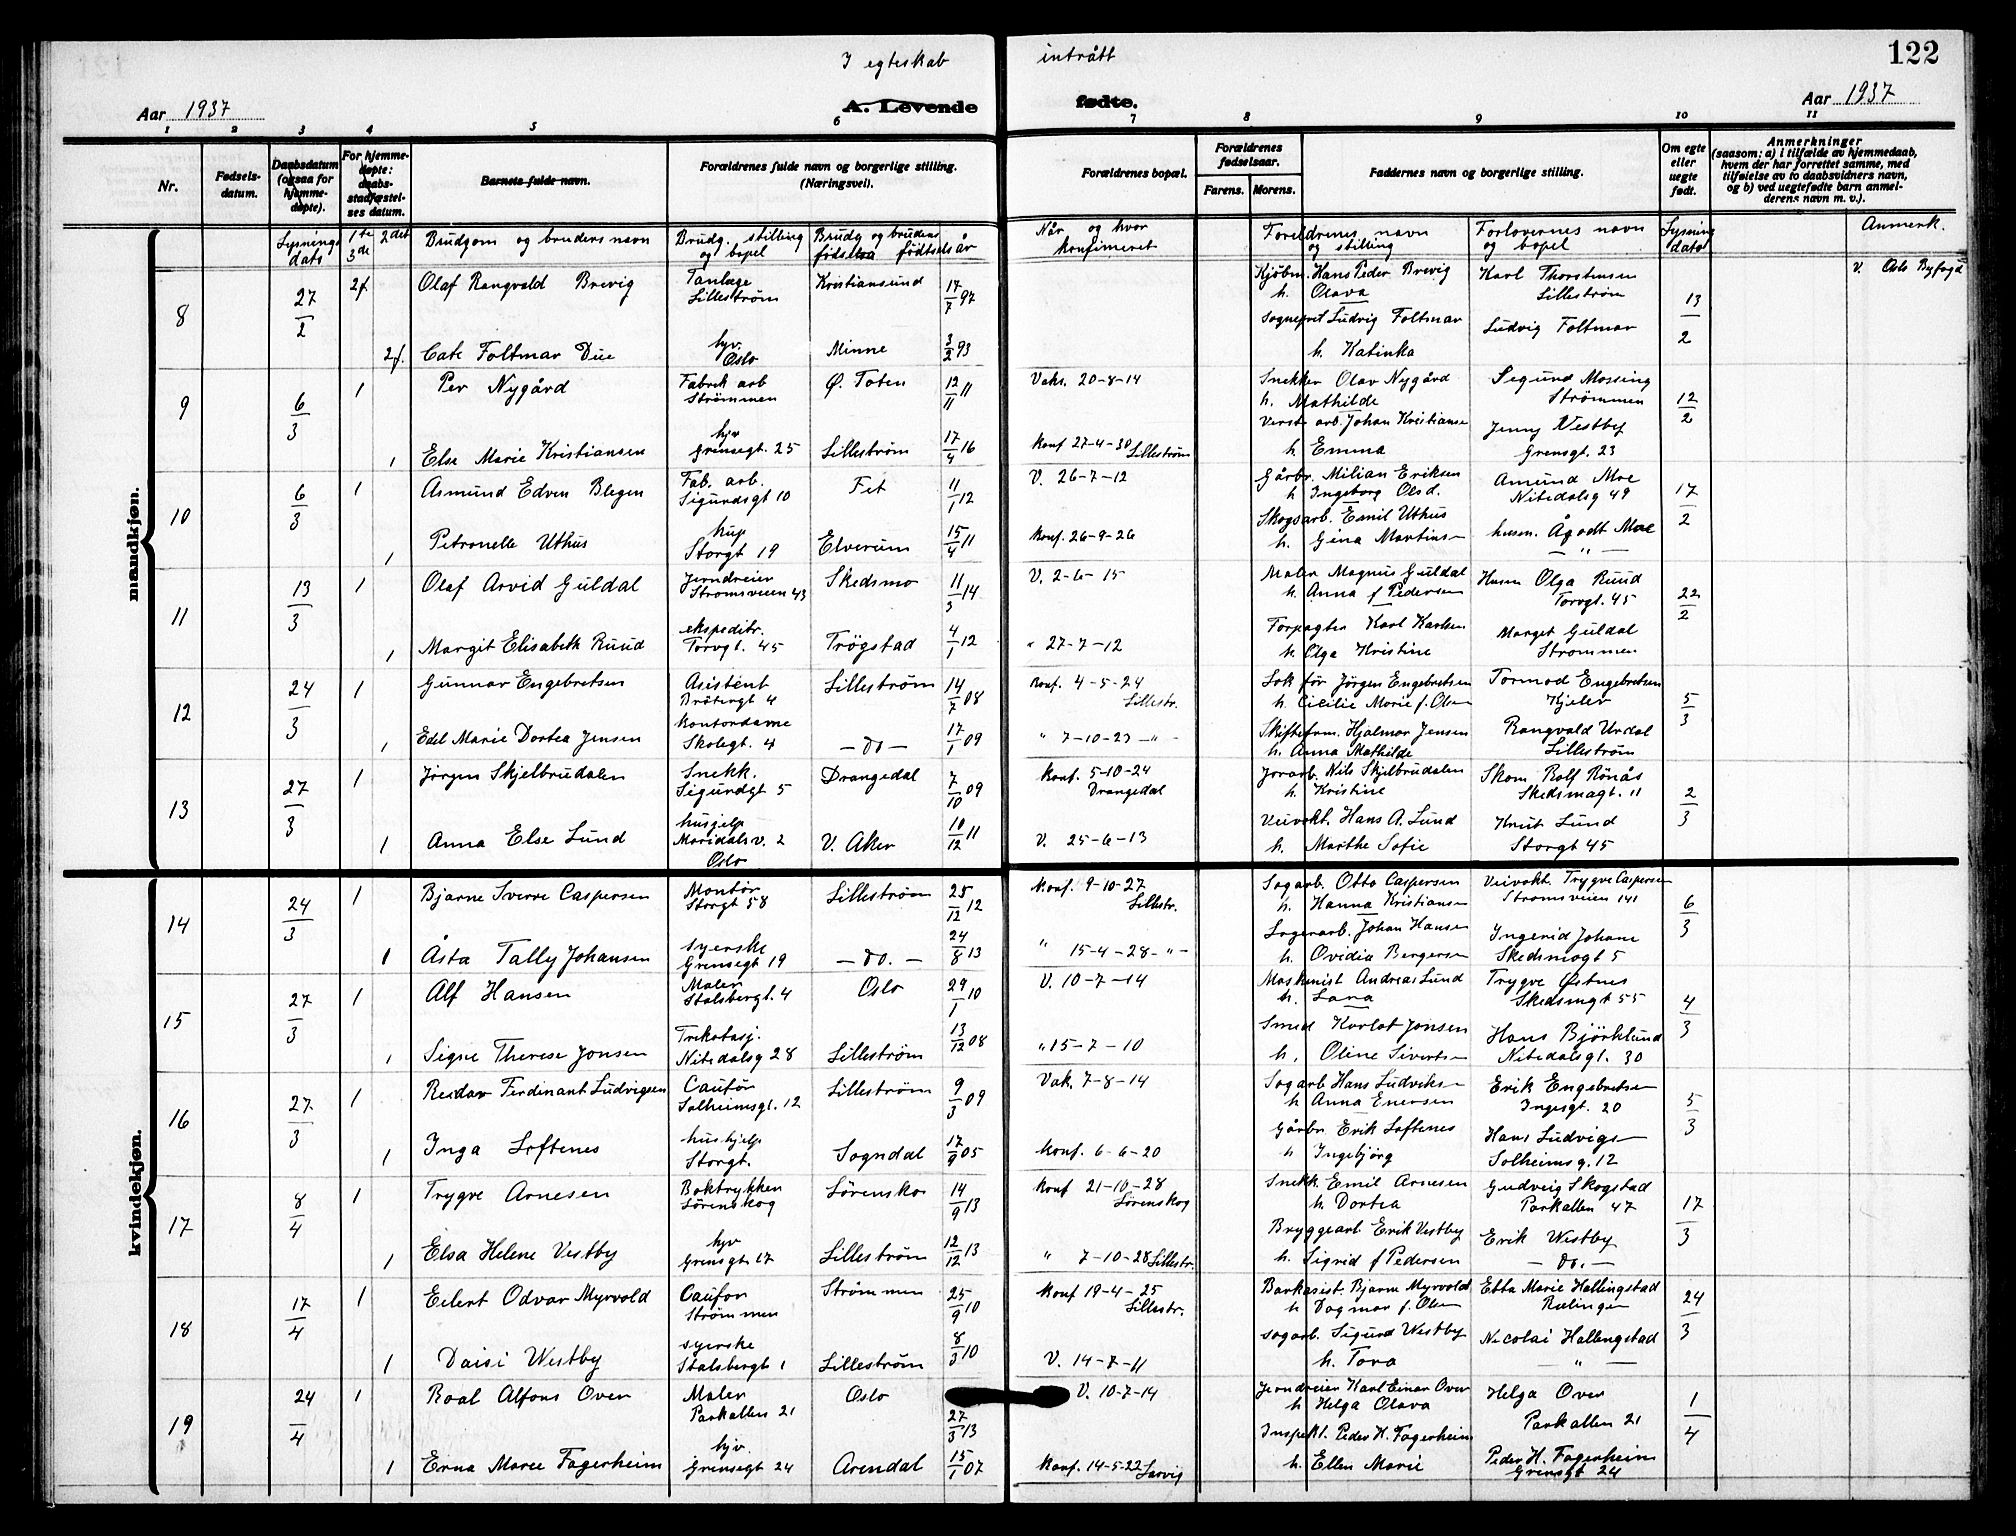 I egteskab intrått
122
Aar 1937 A. Levende fødte. Aar 1937
1 2 3 4 5 6 7 8 9 10 11
Nr.
Fødsels-
datum.
Daabsdatum
(ogsaa for
hjemme-
døpte).
For hjemme-
døpte:
daabs-
stadfæstel-
ses datum.
Barnets fulde navn.
Forældrenes fulde navn og borgerlige stilling.
(Næringsvei).
Forældrenes bopæl.
Forældrenes
fødselsaar.
Farens. Morens.
Faddernes navn og borgerlige stilling.
Om egte
eller
uegte
født.
Anmerkninger
(saasom: a) i tilfælde av hjemmedaab,
hvem der har forrettet samme, med
tilføielse av to daabsvidners navn,
og b) ved uegtefødte barn anmel-
derens navn m. v.).
mandkjøn.
kvindekjøn.
Lysnings dato 1te 2det 3de Brudgom og bruders navn Brudg. stilling og bopel Brudg og brudens fødtsels år
Når og hvor konfimeret Foreldrenes navn og stilling Forlovernes navn og bopel Lysning dato Anmerk.
8 27/2 2f. Olaf Rangvald Brevig Tanlæge Lillestrøm Kristiansund 17/7 97 Kjøbm. Hans Peder Brevig h. Olava Karl Thorstensen Lillestrøm 13/2 v. Oslo Byfogd
2f. Cate Foltmar Due hjv. Oslo Minne 3/2 93 Sogneprst Ludvig Foltmar h. Katinka Ludvig Foltmar
9 6/3 1 Per Nygård Fabrik arb Strømmen Ø. Toten 12/11 11 Vaks. 20-8-14 Snekker Olav Nygård h. Mathilde Segund Mossing Strømmen 12/2
1 Else Marie Kristiansen hjv Grensegt. 25 Lillestrøm 17/4 16 Konf 27-4-30 Lillestrøm Verkst arb. Johan Kristianse h. Emma Jenny Nestby Grensgt. 23
10 6/3 1 Asmund Edven Blegen Fab. arb. Sigurdsgt 10 Fet 11/1 12 V. 26-7-12 Gårbr. Milian Eriksen h Ingeborg Olsd. Amund Moe Nitedalsg 49 17/2
1 Petronelle Uthus hup Storgt 19 Elverum 15/4 11 Konf. 26-9-26 Skogsarb. Emil Uthus h. Gina Martins- husm. Ågodt Moe — „ —
11 13/3 1 Olaf Arvid Guldal Jerndreier Strømsveien 43 Skedsmo 11/3 14 V. 2-6-15 Maler Magnus Guldal h. Anna f Pedersen Husm Olga Ruud Torvgt. 45 22/2
1 Margit Elisabeth Ruud ekspeditr. Torvgt. 45 Trøgstad 4/1 12 „ 27-7-12 Forpagter Karl Karlsen h. Olga Kristine Marget Guldal Strømmen
12 24/3 1 Gunnar Engebretsen Asistent Bråtergt 4 Lillestrøm 14/7 08 Konf. 4-5-24 Lillestr. Lok før Jørgen Engebretsen h. Cicilie Marie f. Olsen Tormod Engebretsen Kjeler 5/3
1 Edel Marie Dortea Jensen Kontordame Skolegt. 4 — do — 17/1 09 „ 7-10-23 — „ — Skiftefrm. Hjalmar Jensen h. Anna Mathilde Rangvald Urdal Lillestrøm
13 27/3 1 Jørgen Skjelbrudalen Snekk. Sigurdgt 5 Drangedal 7/10 09 Konf. 5-10-24 Drangedal Jorarb. Nils Skjelbrudalen h. Kristine Skom Rolf Rönås Skedsmogt. 11 2/3
1 Anna Else Lund husjelp Maridalsv. 2 Oslo V. Aker 10/12 11 V. 25-6-13 Veivokt. Hans A. Lund h. Marthe Sofie Knut Lund Storgt 45
14 24/3 1 Bjarne Sverre Caspersen Montør Storgt 58 Lillestrøm 25/12 12 Konf. 9-10-27 Lillestr. Sagarb. Otto Caspersen h. Hanna Kristians- Veivokt. Trygve Caspersen Strømsveien 141 6/3
1 Åsta Tally Johansen syerske Grensegt 19 — do. — 24/8 13 „ 15-4-28 - „ - Lagerarb. Johan Hansen h. Ovidia Bergersen Ingerid Johans Skedsmogt 5
15 27/3 1 Alf Hansen Maler Stalsbergt. 4 Oslo 29/1 10 V. 10-7-14 Maskinist Andreas Lund h. Lara Trygve Østnes Skedsmgt 55 4/3
1 Signe Therese Jonsen Trikotasj. Nitedalsg 28 Lillestrøm 13/12 08 „ 15-7-10 Smed Karlot Jonsen h. Oline Sivertsen Hans Bjørklund Nitedalsgt. 30
16 27/3 1 Reidar Ferdinant Ludvigsen Caufør Solheimsgt. 12 Lillestrøm 9/3 09 Vak. 7-8-14 Sagarb Hans Ludviks- h Anna Enersen Erik Engebretsen Ingesgt. 20 5/3
1 Inga Loftenes hushjelp Storgt. Sogndal 17/9 05 Konf. 6-6-20 Gårbr. Erik Loftenes h Ingebjørg Hans Ludvigs- Solheimsg. 12
17 8/4 1 Trygve Arnesen Boktrykker Lørenskog Lørensko 14/9 13 Konf 21-10-28 Lørenskog Snekk. Emil Arnesen h. Dortea Gudveig Skogstad Parkallen 47 17/3
1 Elsa Helene Vestby hjv Grensgt. 17 Lillestrøm 12/12 13 „ 7-10-28 Lillestr. Bryggearb. Erik Vestby h. Sigrid f Pedersen Erik Westby — do. —
18 17/4 1 Eilert Odvar Myrvold Caufør Strømmen Strømmen 25/9 10 Konf 19-4-25 Lillestr. Bankasist. Bjarne Myrvold h Dagmar f. Olsen Ebba Marie Hallingstad Rælingen 24/3
1 Daisi Westby syerske Stalsbergt 1 Lillestrøm 8/3 10 V. 14-7-11 Sagarb. Sigurd Westby h. Tora Nicolai Hallengstad „ —
19 24/4 1 Roal Alfons Over Maler Parkallen 21 Oslo 27/3 13 V. 10-7-14 Jerndreier Karl Einar Over h Helga Olava Helga Over Parkallen 21 1/4
1 Erna Maree Fagerheim hjv. Grensegt 24 Arendal 15/1 07 Konf. 14-5-22 Larvig Inspekt. Peder H. Fagerheim h. Ellen Marie Peder H. Fagerheim Grensgt 24